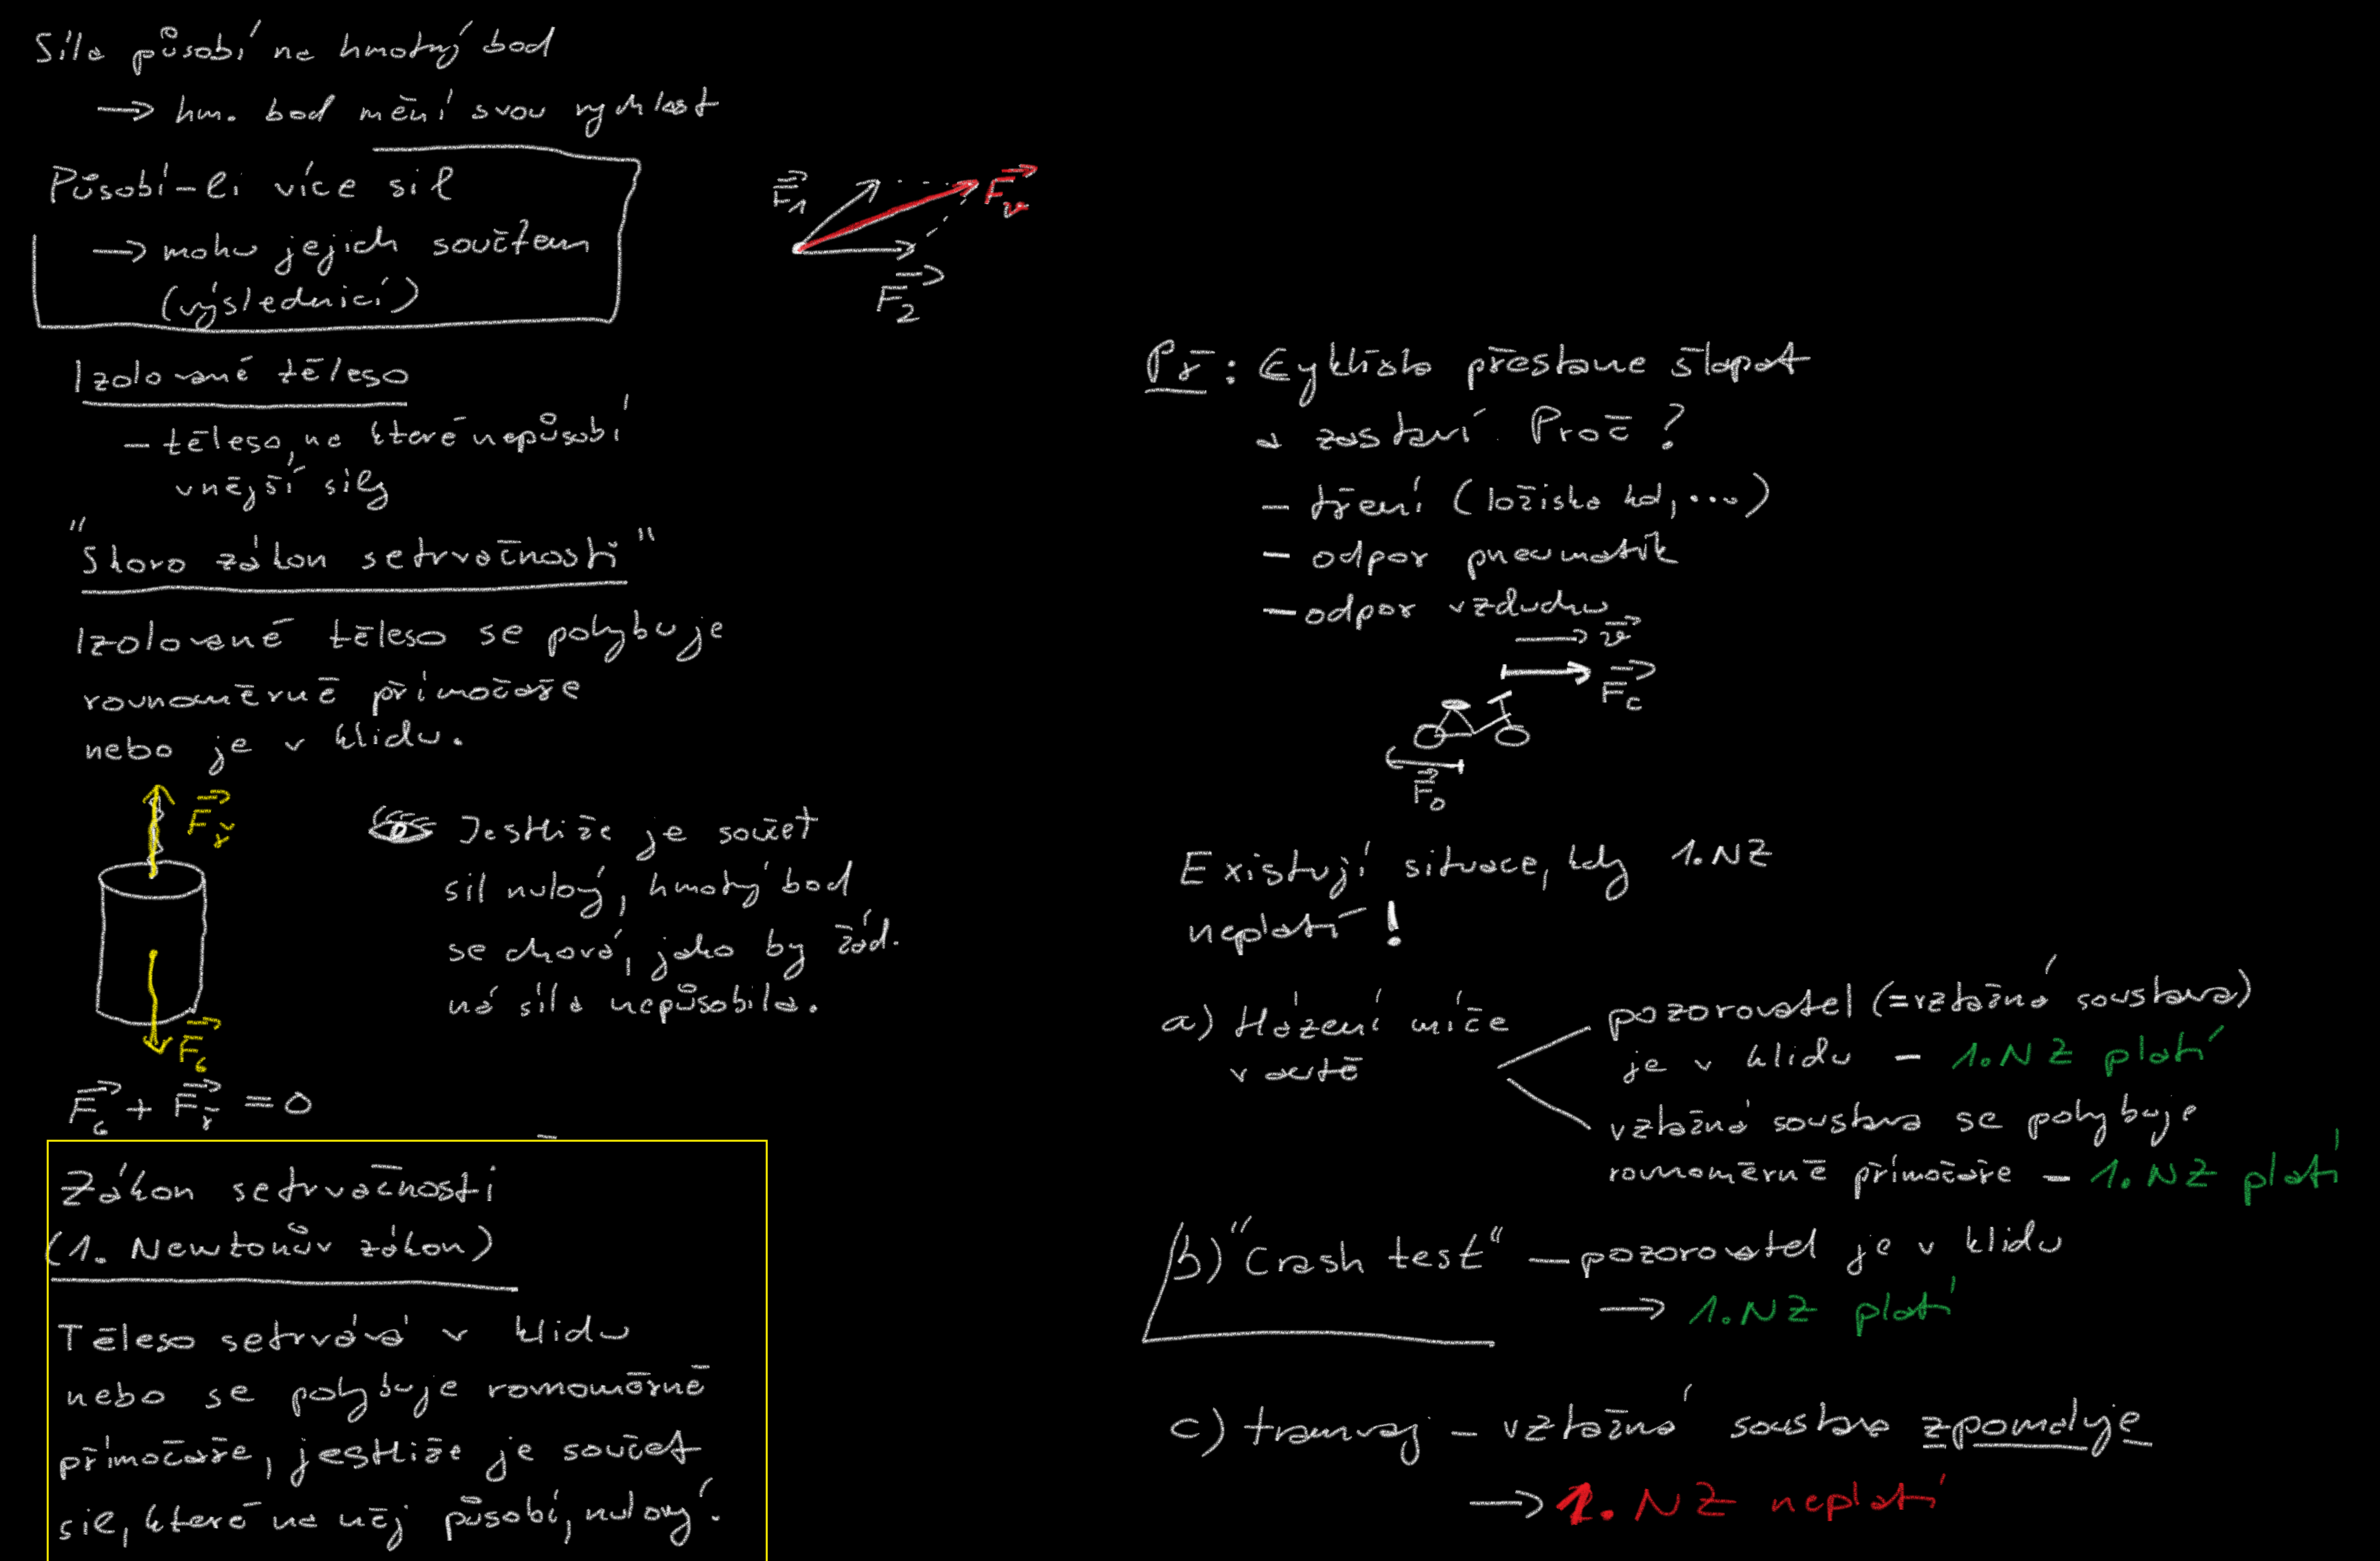 Síla působí na hmotný bod
→ hm. bod mění svou rychlost
Působí-li více sil
→ mohu jejich součtem
(výslednicí)
F₁
F₂
Fᵥ
Izolované těleso
- těleso, na které nepůsobí
vnější síly
"Skoro zákon setrvačnosti"
Izolované těleso se pohybuje
rovnoměrně přímočaře
nebo je v klidu.
Fř
FG
Jestliže je součet
sil nulový, hmotný bod
se chová, jako by žád.
ná síla nepůsobila.
FG + Fř = 0
Zákon setrvačnosti
(1. Newtonův zákon)
Těleso setrvává v klidu
nebo se pohybuje rovnoměrně
přímočaře, jestliže je součet
sil, které na něj působí, nulový.
Př: Cyklista přestane šlapat
a zastaví. Proč?
- tření (ložiska kol, ...)
- odpor pneumatik
- odpor vzduchu
v
Fc
Fo
Existují situace, kdy 1.NZ
neplatí!
a) Házení míče
v autě
pozorovatel (=vztažná soustava)
je v klidu - 1.NZ platí
vztažná soustava se pohybuje
rovnoměrně přímočaře - 1.NZ platí
b) "Crash test" - pozorovatel je v klidu
→ 1.NZ platí
c) tramvaj - vztažná soustava zpomaluje
→ 1. NZ neplatí